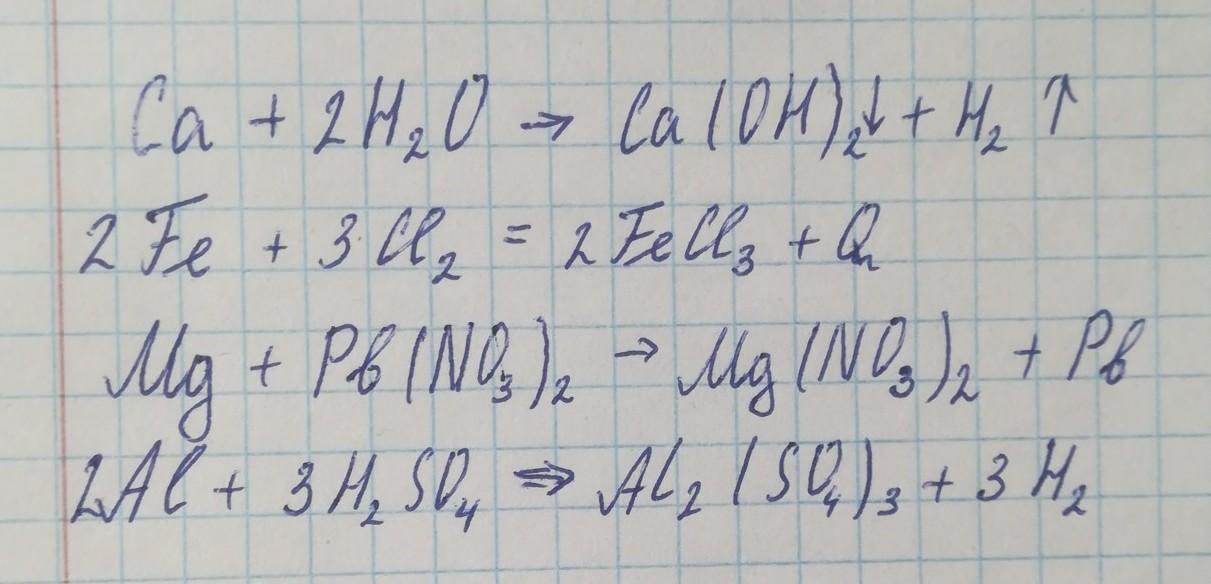 Ca + 2H₂O → Ca(OH)₂↓ + H₂ ↑
2Fe + 3Cl₂ = 2FeCl₃ + Q
Mg + Pb(NO₃)₂ → Mg(NO₃)₂ + Pb
2Al + 3H₂SO₄ ⇒ Al₂(SO₄)₃ + 3H₂